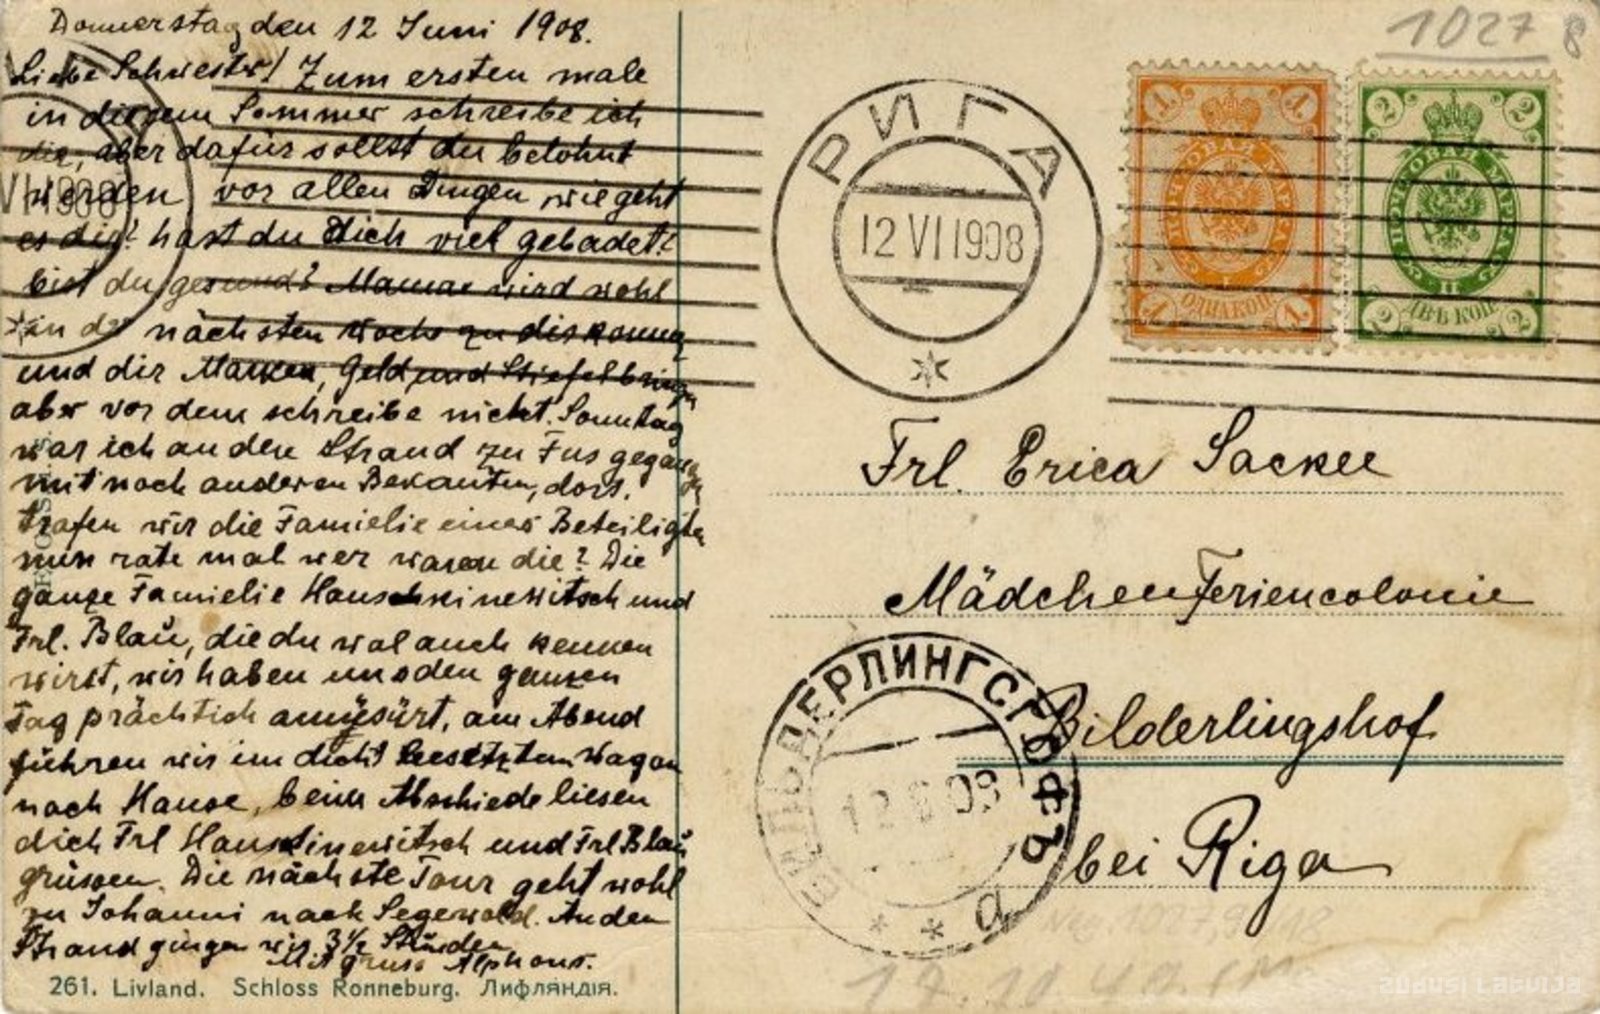 Donnerstag den 12 Juni 1908.
Liebe Schwester! Zum ersten male
in diesem Sommer schreibe ich
dir, aber dafür sollst du belohnt
werden vor allen Dingen wie geht
es dir? hast du dich viel gebadet?
bist du gesund? Mama wird wohl
in der nächsten Woche zu dis komme
und dir Marken, Geld und Stiefel bringen
aber vor dem schreibe nicht. Sonntag
war ich an den Strand zu Fus gegangen
mit noch anderen Bekanten, dort
trafen wir die Familie eines Beteiligten
nun rate mal wer waren die? Die
ganze Familie und
Frl. Blau, die du wol auch kennen
wirst, wir haben uns den ganzen
Tag prächtich amüsürt, am Abend
führen wir im dicht besetzten Wagon
nach Hause, beim Abschiede liesen
dich Frl und Frl Blau
grüssen. Die nächste Tour geht wohl
zu Johanni nach Segewold. An den
Strand gingen wir 3½ Stunden
Mit gruss Alphons.
261. Livland. Schloss Ronneburg. Лифляндія.
1027 8
РИГА
12 VI 1908
VI 1908
1 1
ПОЧТОВАЯ МАРКА
I
ОДНА КОП.
1 1
2 2
ПОЧТОВАЯ МАРКА
II
ДВѢ КОП.
2 2
Frl. Erica Sacker
Mädchen Feriencolonie
Bilderlingshof
bei Riga
БИЛЬДЕРЛИНГСГОФЪ
12 6 08
а
1027, 9
ZUDUSI LATVIJA